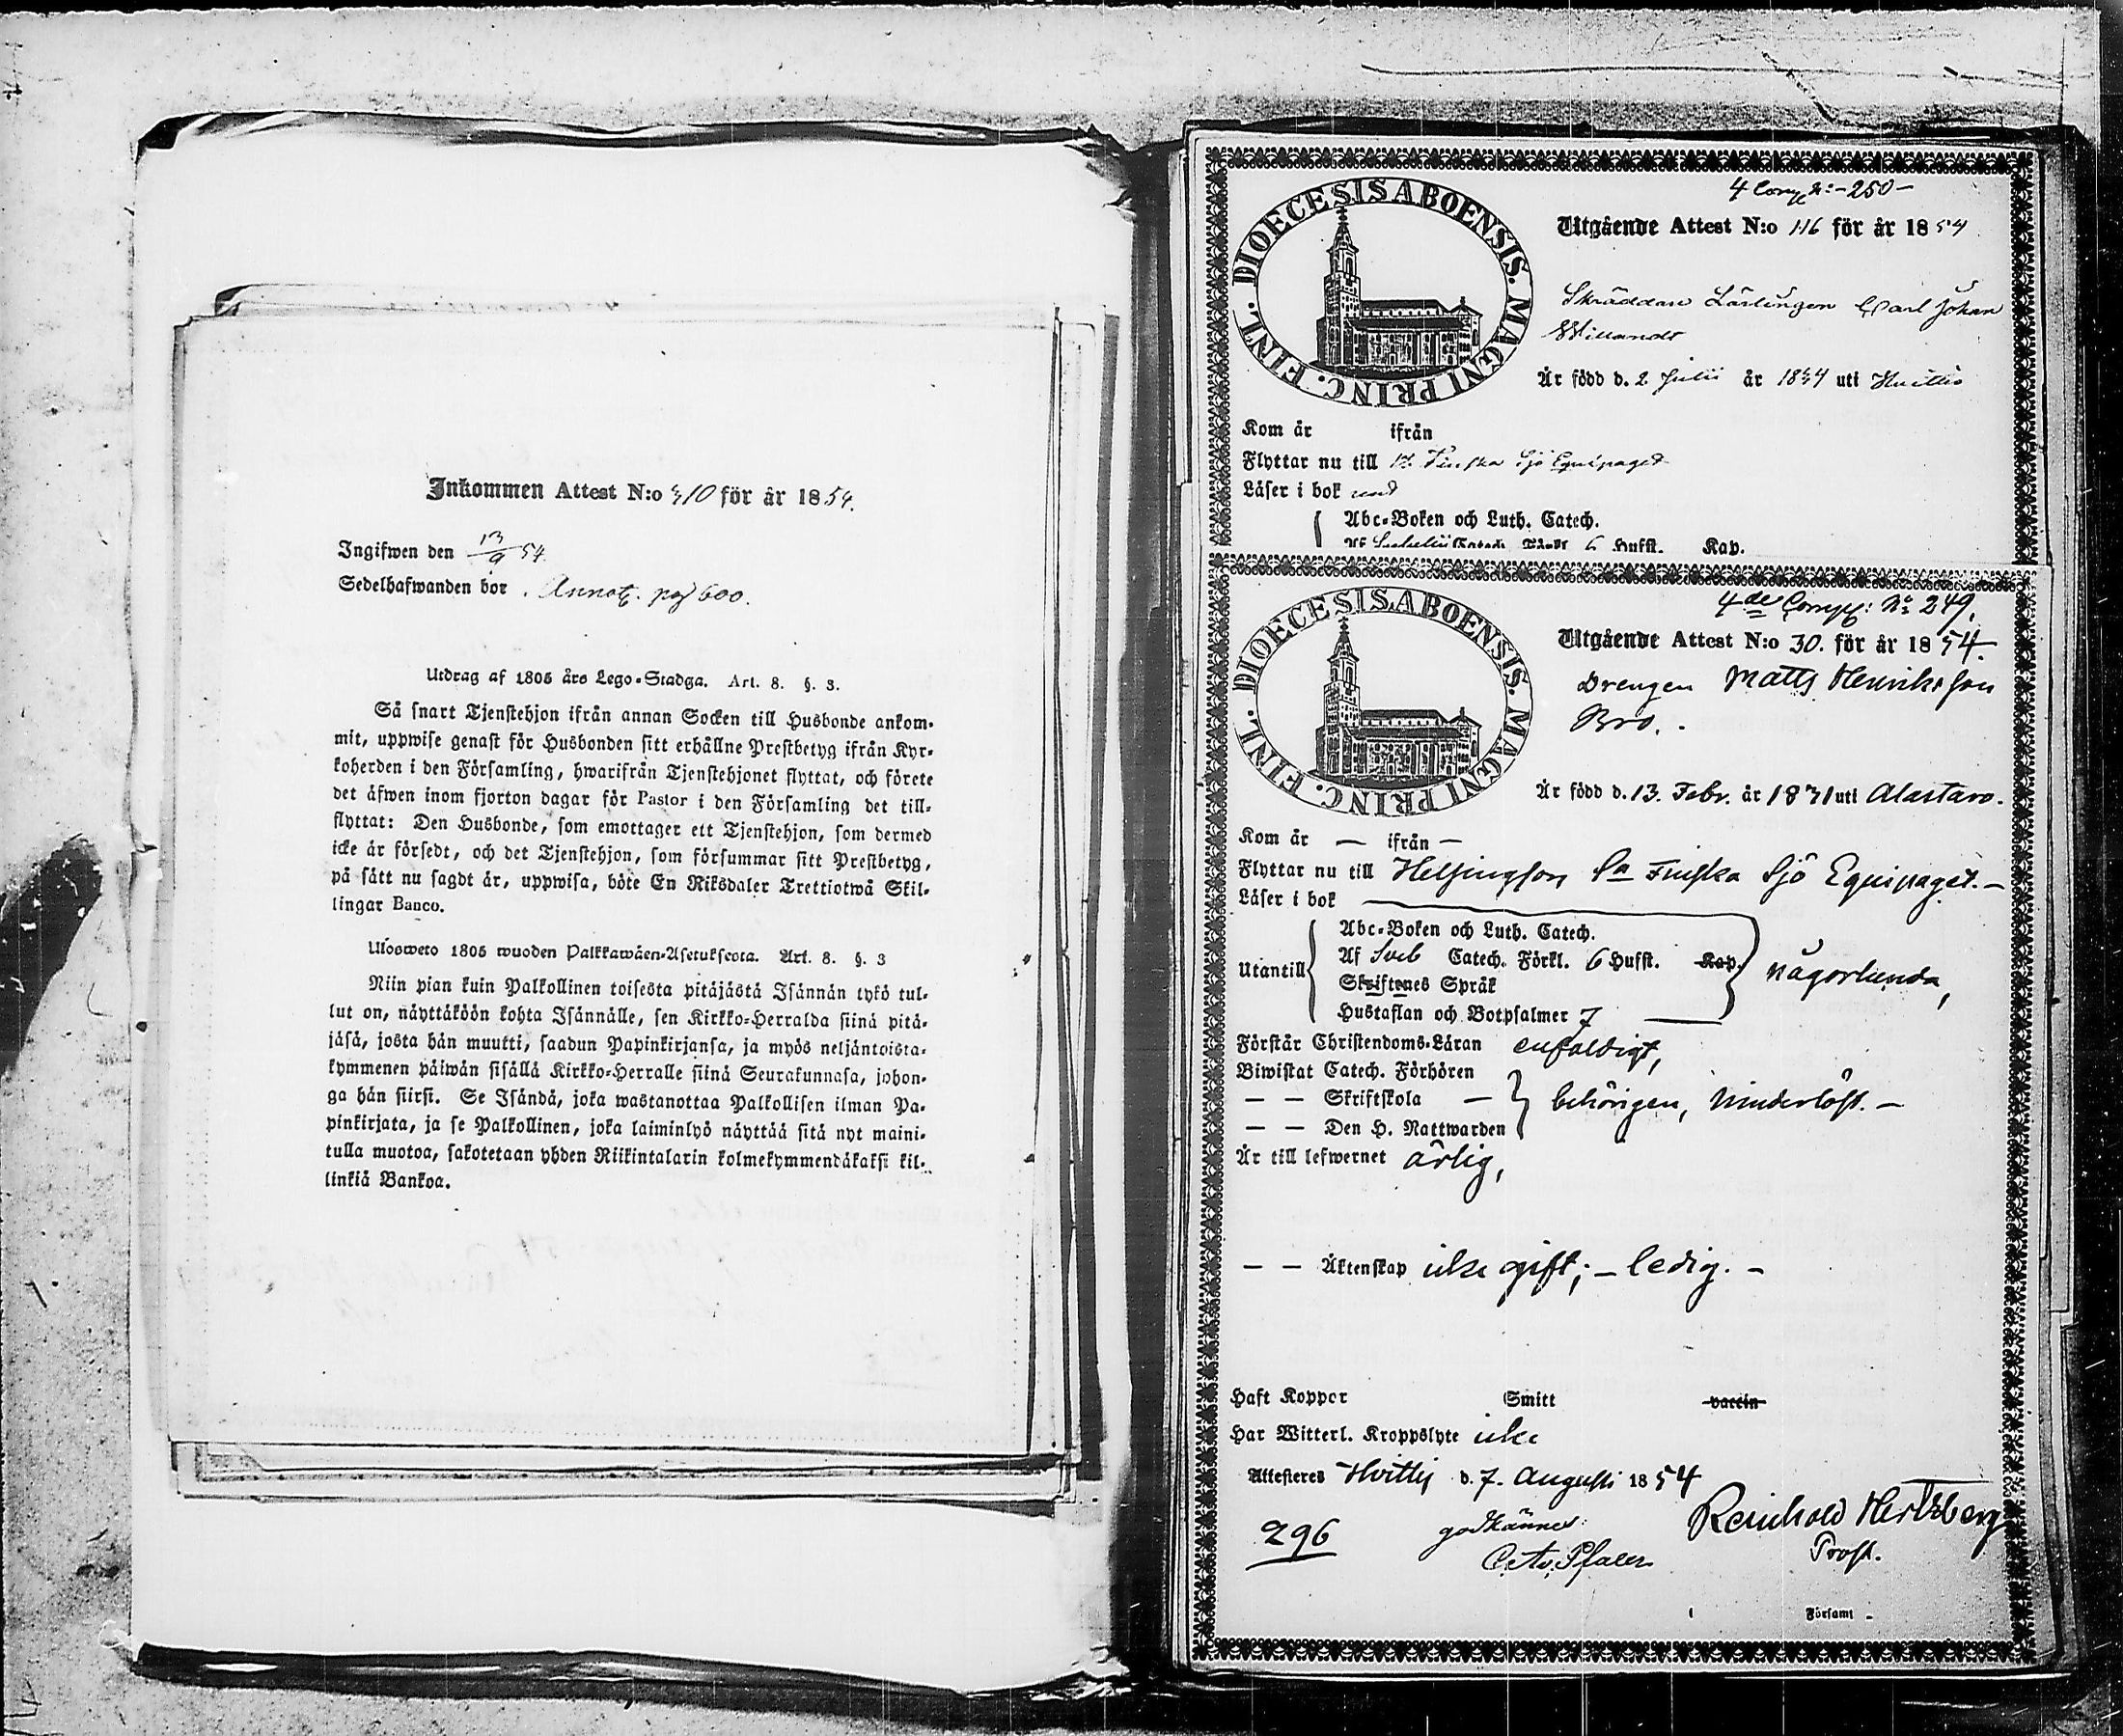 Inkommen Attest N:o 310 för år 1854.
Ingifwen den 13/9 54
Sedelhafwanden bor . Annot. pag 600.
Utdrag af 1805 års Lego-Stadga. Art. 8. §. 3.
Så snart Tjenstehjon ifrån annan Socken till Husbonde ankom-
mit, uppwise genast för Husbonden sitt erhållne Prestbetyg ifrån Kyr-
koherden i den Församling, hwarifrån Tjenstehjonet flyttat, och förete
det äfwen inom fjorton dagar för Pastor i den Församling det till-
flyttat: Den Husbonde, som emottager ett Tjenstehjon, som dermed
icke är försedt, och det Tjenstehjon, som försummar sitt Prestbetyg,
på sätt nu sagdt är, uppwisa, böte En Riksdaler Trettiotwå Skil-
lingar Banco.
Ulosweto 1805 wuoden Palkkawäen-Asetuksesta. Art. 8. §. 3
Niin pian kuin Palkollinen toisesta pitäjästä Isännän tykö tul-
lut on, näyttäköön kohta Isännälle, sen Kirkko-Herralda siinä pitä-
jäsä, josta hän muutti, saadun Papinkirjansa, ja myös neljäntoista-
kymmenen päiwän sisällä Kirkko-Herralle siinä Seurakunnasa, johon-
ga hän siirsi. Se Isändä, joka wastanottaa Palkollisen ilman Pa-
pinkirjata, ja se Palkollinen, joka laiminlyö näyttää sitä nyt maini-
tulla muotoa, sakotetaan yhden Riikintalarin kolmekymmendäkaksi kil-
linkiä Bankoa.
DIOECESIS ABOENSIS. MAGNI PRINC. FINL.
4 Comp N: - 250 -
Utgående Attest N:o 116 för år 1854
Skräddare Lärlingen Carl Johan
Är född d. 2 Julii år 1834 uti Huittis
Kom år ifrån
Flyttar nu till 1st. Finska Sjö Equipaget
Läser i bok
Abc-Boken och Luth. Catech.
Af Sebelii Catech. Förkl. 6 Hufst. Kap.
DIOECESIS ABOENSIS. MAGNI PRINC. FINL.
4de Comp: No 249.
Utgående Attest N:o 30. för år 1854.
Drengen Matts Henriksson
Bro.
Är född d. 13. Febr. år 1831 uti Alastaro.
Kom år — ifrån —
Flyttar nu till Helsingfors 1a Finska Sjö Equipaget. —
Läser i bok
Utantill
Abc-Boken och Luth. Catech.
Af Sveb Catech. Förkl. 6 Hufst. Kap.
Skriftenes Språk
Hustaflan och Botpsalmer 7
någorlunda,
Förstår Christendoms-Läran enfaldigt,
Biwistat Catech. Förhören
— — Skriftskola — behörigen, hinderlöst. —
— — Den H. Nattwarden
Är till lefwernet ärlig,
— — Äktenskap icke gift; — ledig. —
Haft Koppor Smitt vaccin
Har Witterl. Kroppslyte icke
Attesteres Hvittis d. 7. Augusti 1854
Reinhold Hertzberg
Prost.
296
godkännes:
Församl -